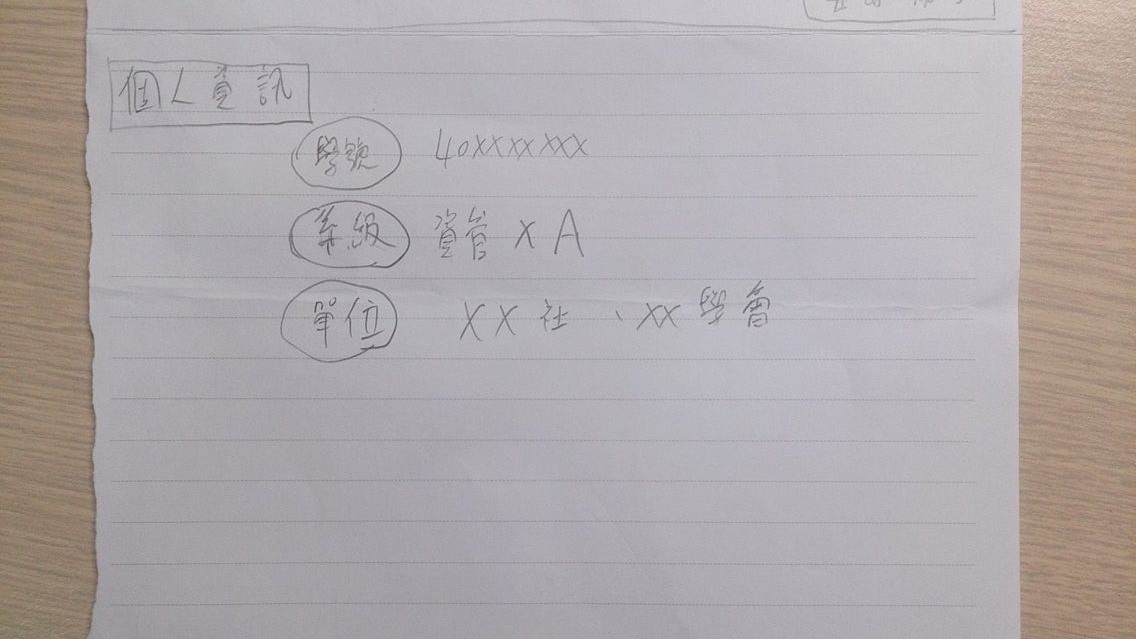 個人資訊
學號 40XXXXXXX
系級 資管 X A
單位 XX社、XX學會